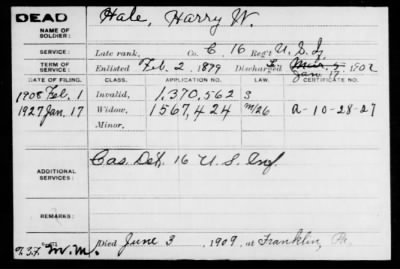 DEAD
Hale, Harry W.
NAME OF SOLDIER:
SERVICE: Late rank, Co. C. 16 Reg't U. S. I.
TERM OF SERVICE: Enlisted Feb. 2 1899 Discharged 1902
Jan. 17
DATE OF FILING. CLASS. APPLICATION NO. LAW. CERTIFICATE NO.
1908 Feb. 1 Invalid, 1,370,562 S
1927 Jan. 17 Widow, 1567,424 M/26 A-10-28-27
Minor,
ADDITIONAL SERVICES: Cas. Det. 16 U. S. Inf.
REMARKS:
M. M. Died June 3, 1909, at Franklin, Pa.